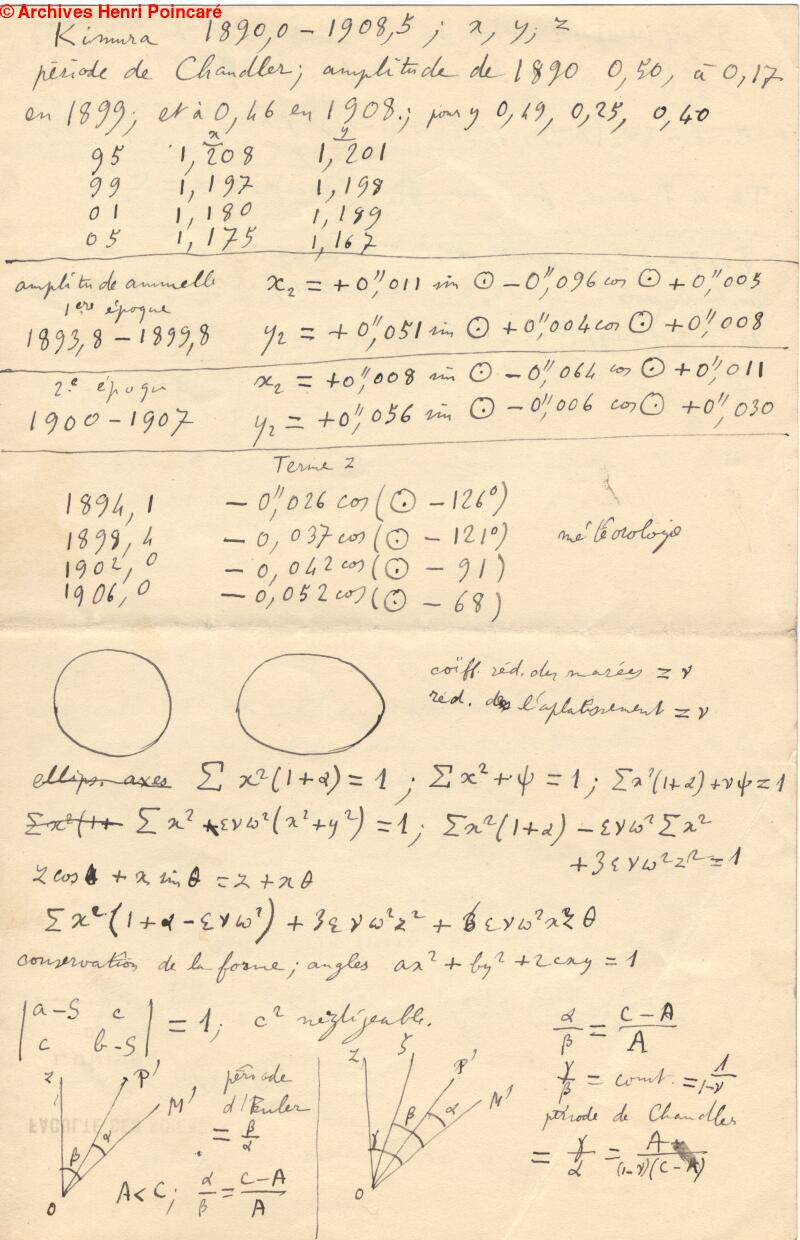 © Archives Henri Poincaré
Kimura 1890,0 – 1908,5 ; x, y, z
période de Chandler; amplitude de 1890 0,50, à 0,17
en 1899; et à 0,46 en 1908.; pour y 0,49, 0,25, 0,40
x y
95 1,208 1,201
99 1,197 1,198
01 1,180 1,189
05 1,175 1,167
amplitude annuelle
1ere époque
1893,8 – 1899,8
x₂ = +0",011 sin ⊙ – 0",096 cos ⊙ + 0",005
y₂ = +0",051 sin ⊙ + 0",004 cos ⊙ + 0",008
2.e époque
1900 – 1907
x₂ = +0",008 sin ⊙ – 0",064 cos ⊙ + 0",011
y₂ = +0",056 sin ⊙ – 0",006 cos ⊙ + 0",030
Terme z
1894,1 – 0",026 cos(⊙ – 126°)
1898,4 – 0,037 cos(⊙ – 121°) météorologie
1902,0 – 0,042 cos(⊙ – 91)
1906,0 – 0,052 cos(⊙ – 68)
coëff. réd. des marées = ν
réd. de l'aplatissement = ν
ellips. axes Σ x²(1+α) = 1 ; Σ x² + ψ = 1 ; Σx²(1+α) + νψ = 1
Σx²(1+ Σ x² + ενω²(x²+y²) = 1; Σx²(1+α) – ενω² Σx²
+ 3ενω²z² = 1
z cos θ + x sin θ = z + xθ
Σ x²(1+α–ενω²) + 3ενω²z² + 6ενω²xzθ
conservation de la forme; angles ax² + by² + 2cxy = 1
| a–S c |
| c b–S | = 1; c² négligeable.
z P' M' O β α
période
d'Euler
= β/α
A<C; α/β = C–A/A
z ζ P' M' O γ β α
α/β = C–A/A
γ/β = const. = 1/1–ν
période de Chandler
= γ/α = A/(1–ν)(C–A)